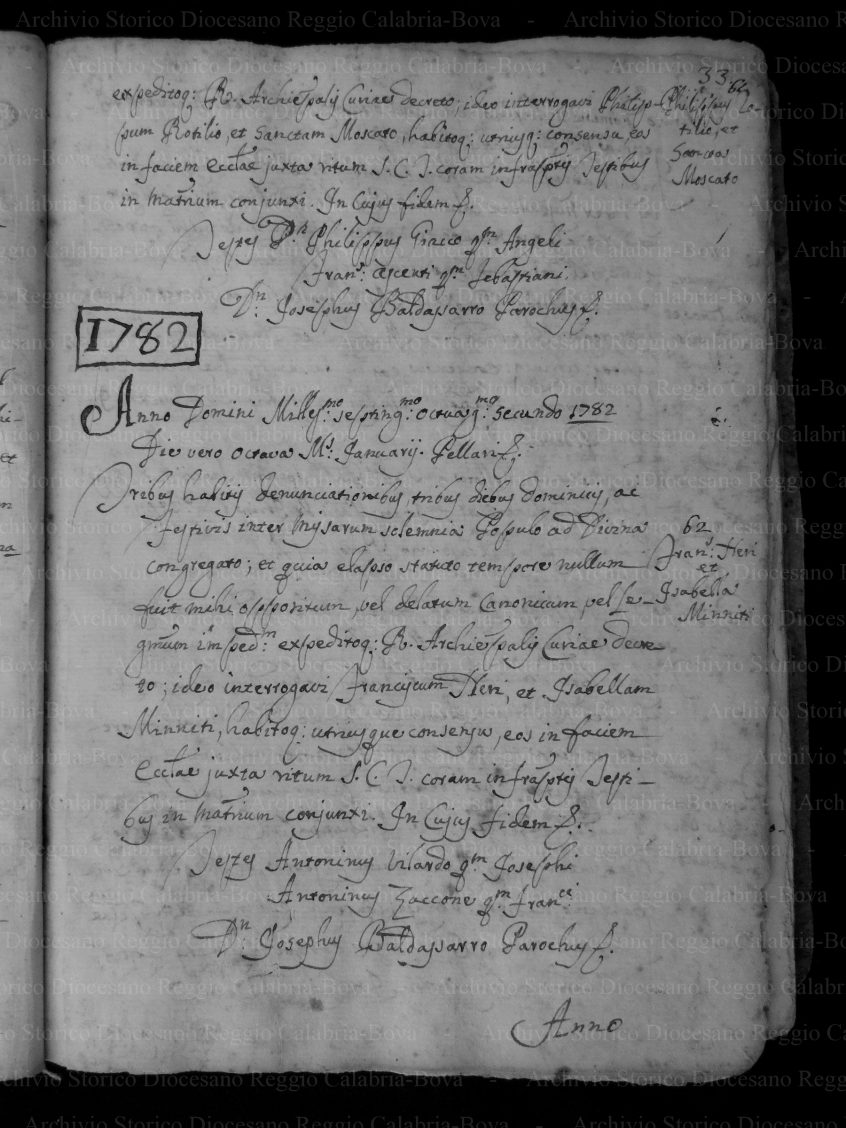 33
expeditoq: R. Archiepalis Curiae decreto; ideo interrogavi Philip-
pum Rotilio, et Sanctam Moscato, habitoq: utriusq: consensu eos
in faciem Ecctae juxta ritum S. C. T. coram infraptis Testibus
in Matrium conjunxi. In Cujus fidem &.
Philippus Ro-
tilio, et
Sancta
Moscato
Testes Dn Philippus Giacco qm Angeli
Frans: Ascenti qm Sebastiani
Dn: Josephus Baldassarro Parochus &.
1782
Anno Domini Millesmo: septingmo: octuagmo: secundo 1782
Die vero octava Ms: Januarij. Pellari &.
Tribus habitis denunciationibus, tribus diebus dominicis, ac
festivis inter Missarum solemnia Populo ad Divina
congregato; et quia elapso statuto tempore nullum
fuit mihi oppositum, vel delatum Canonicum, vel Le-
gmum impedm: expeditoq: R. Archiepalis Curiae decre-
to; ideo interrogavi Franciscum Neri, et Isabellam
Minniti, habitoq: utriusque consensu, eos in faciem
Ecctae juxta ritum S. C. T. coram infraptis Testi-
bus in Matrium conjunxi. In Cujus fidem &.
62
Frans: Neri
et
Isabella
Minniti
Testes Antoninus Vilardo qm Josephi
Antoninus Zaccone qm Franci:
Dn: Josephus Baldassarro Parochus &.
Anno
Archivio Storico Diocesano Reggio Calabria-Bova